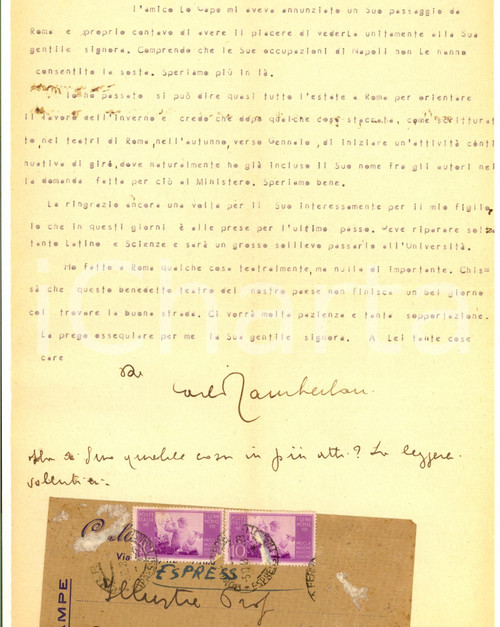 l'amico Lo Capo mi aveva annunziato un Suo passaggio da
Roma e proprio contavo di avere il piacere di vederLa unitamente alla Sua
gentile signora. Comprendo che le Sue occupazioni di Napoli non Le hanno
consentito la sosta. Speriamo più in là.
Io ho passato si può dire quasi tutto l'estate a Roma per orientare
il lavoro dell'inverno e credo che dopo qualche cosa staccata, come scritturat
to, nei teatri di Roma, nell'autunno, verso Gennaio, di iniziare un'attività conti
nuativa di giro, dove naturalmente ho già incluso il Suo nome fra gli autori nel
la domanda fatta per ciò al Ministero. Speriamo bene.
La ringrazio ancora una volta per il Suo interessamento per il mio figlio
lo che in questi giorni è alle prese per l'ultimo passo. Deve riparare sol
tanto Latino e Scienze e sarà un grosso sollievo passarlo all'Università.
Ho fatto a Roma qualche cosa teatralmente, ma nulla di importante. Chis
sà che questo benedetto teatro del nostro paese non finisca un bel giorno
col trovare la buona strada. Ci vorrà molta pazienza e tanta sopportazione.
La prego ossequiare per me la Sua gentile signora. A Lei tante cose
care
Carlo Tamberlani
di Suo qualche cosa in più atti? La leggerei
volentieri.
Via
10
ESPRESSO
Illustre Prof
AMPE